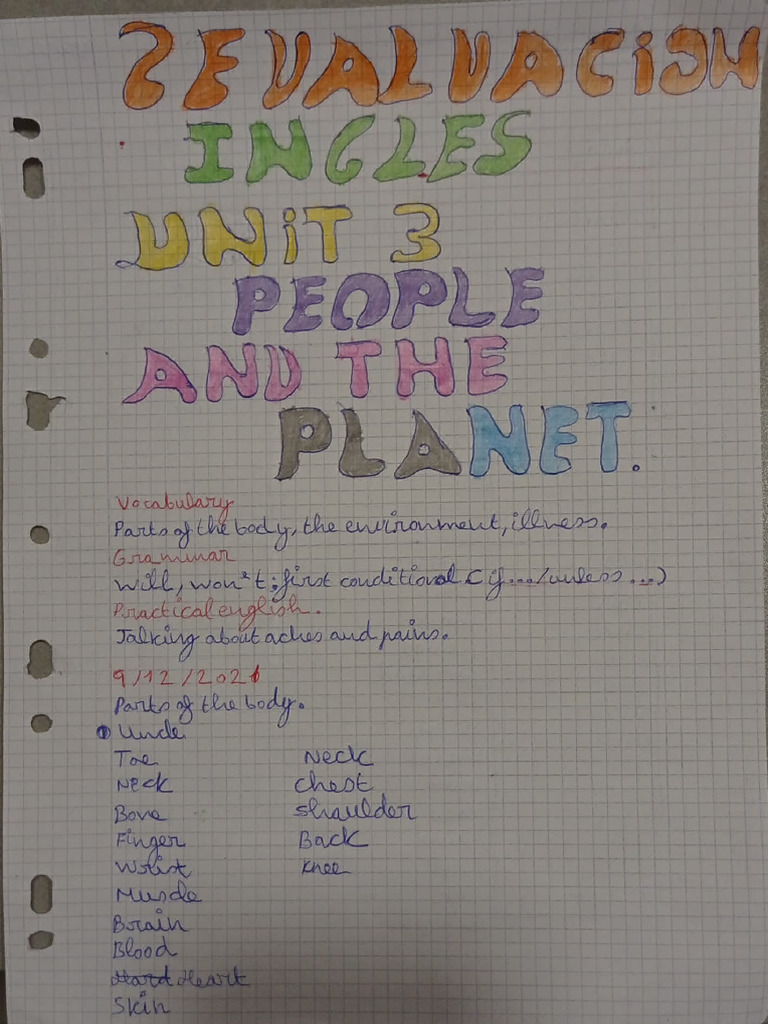 2EVALUACIÓN
INGLES
UNIT 3
PEOPLE
AND THE
PLANET.
Vocabulary
Parts of the body, the environment, illness.
Grammar
Will, won't; first conditional (if.../unless...)
Practical english.
Talking about aches and pains.
9/12/2021
Parts of the body.
Toe
Neck
Bone
Finger
Wrist
Muscle
Brain
Blood
Hard Heart
Skin
Neck
Chest
Shaulder
Back
Knee